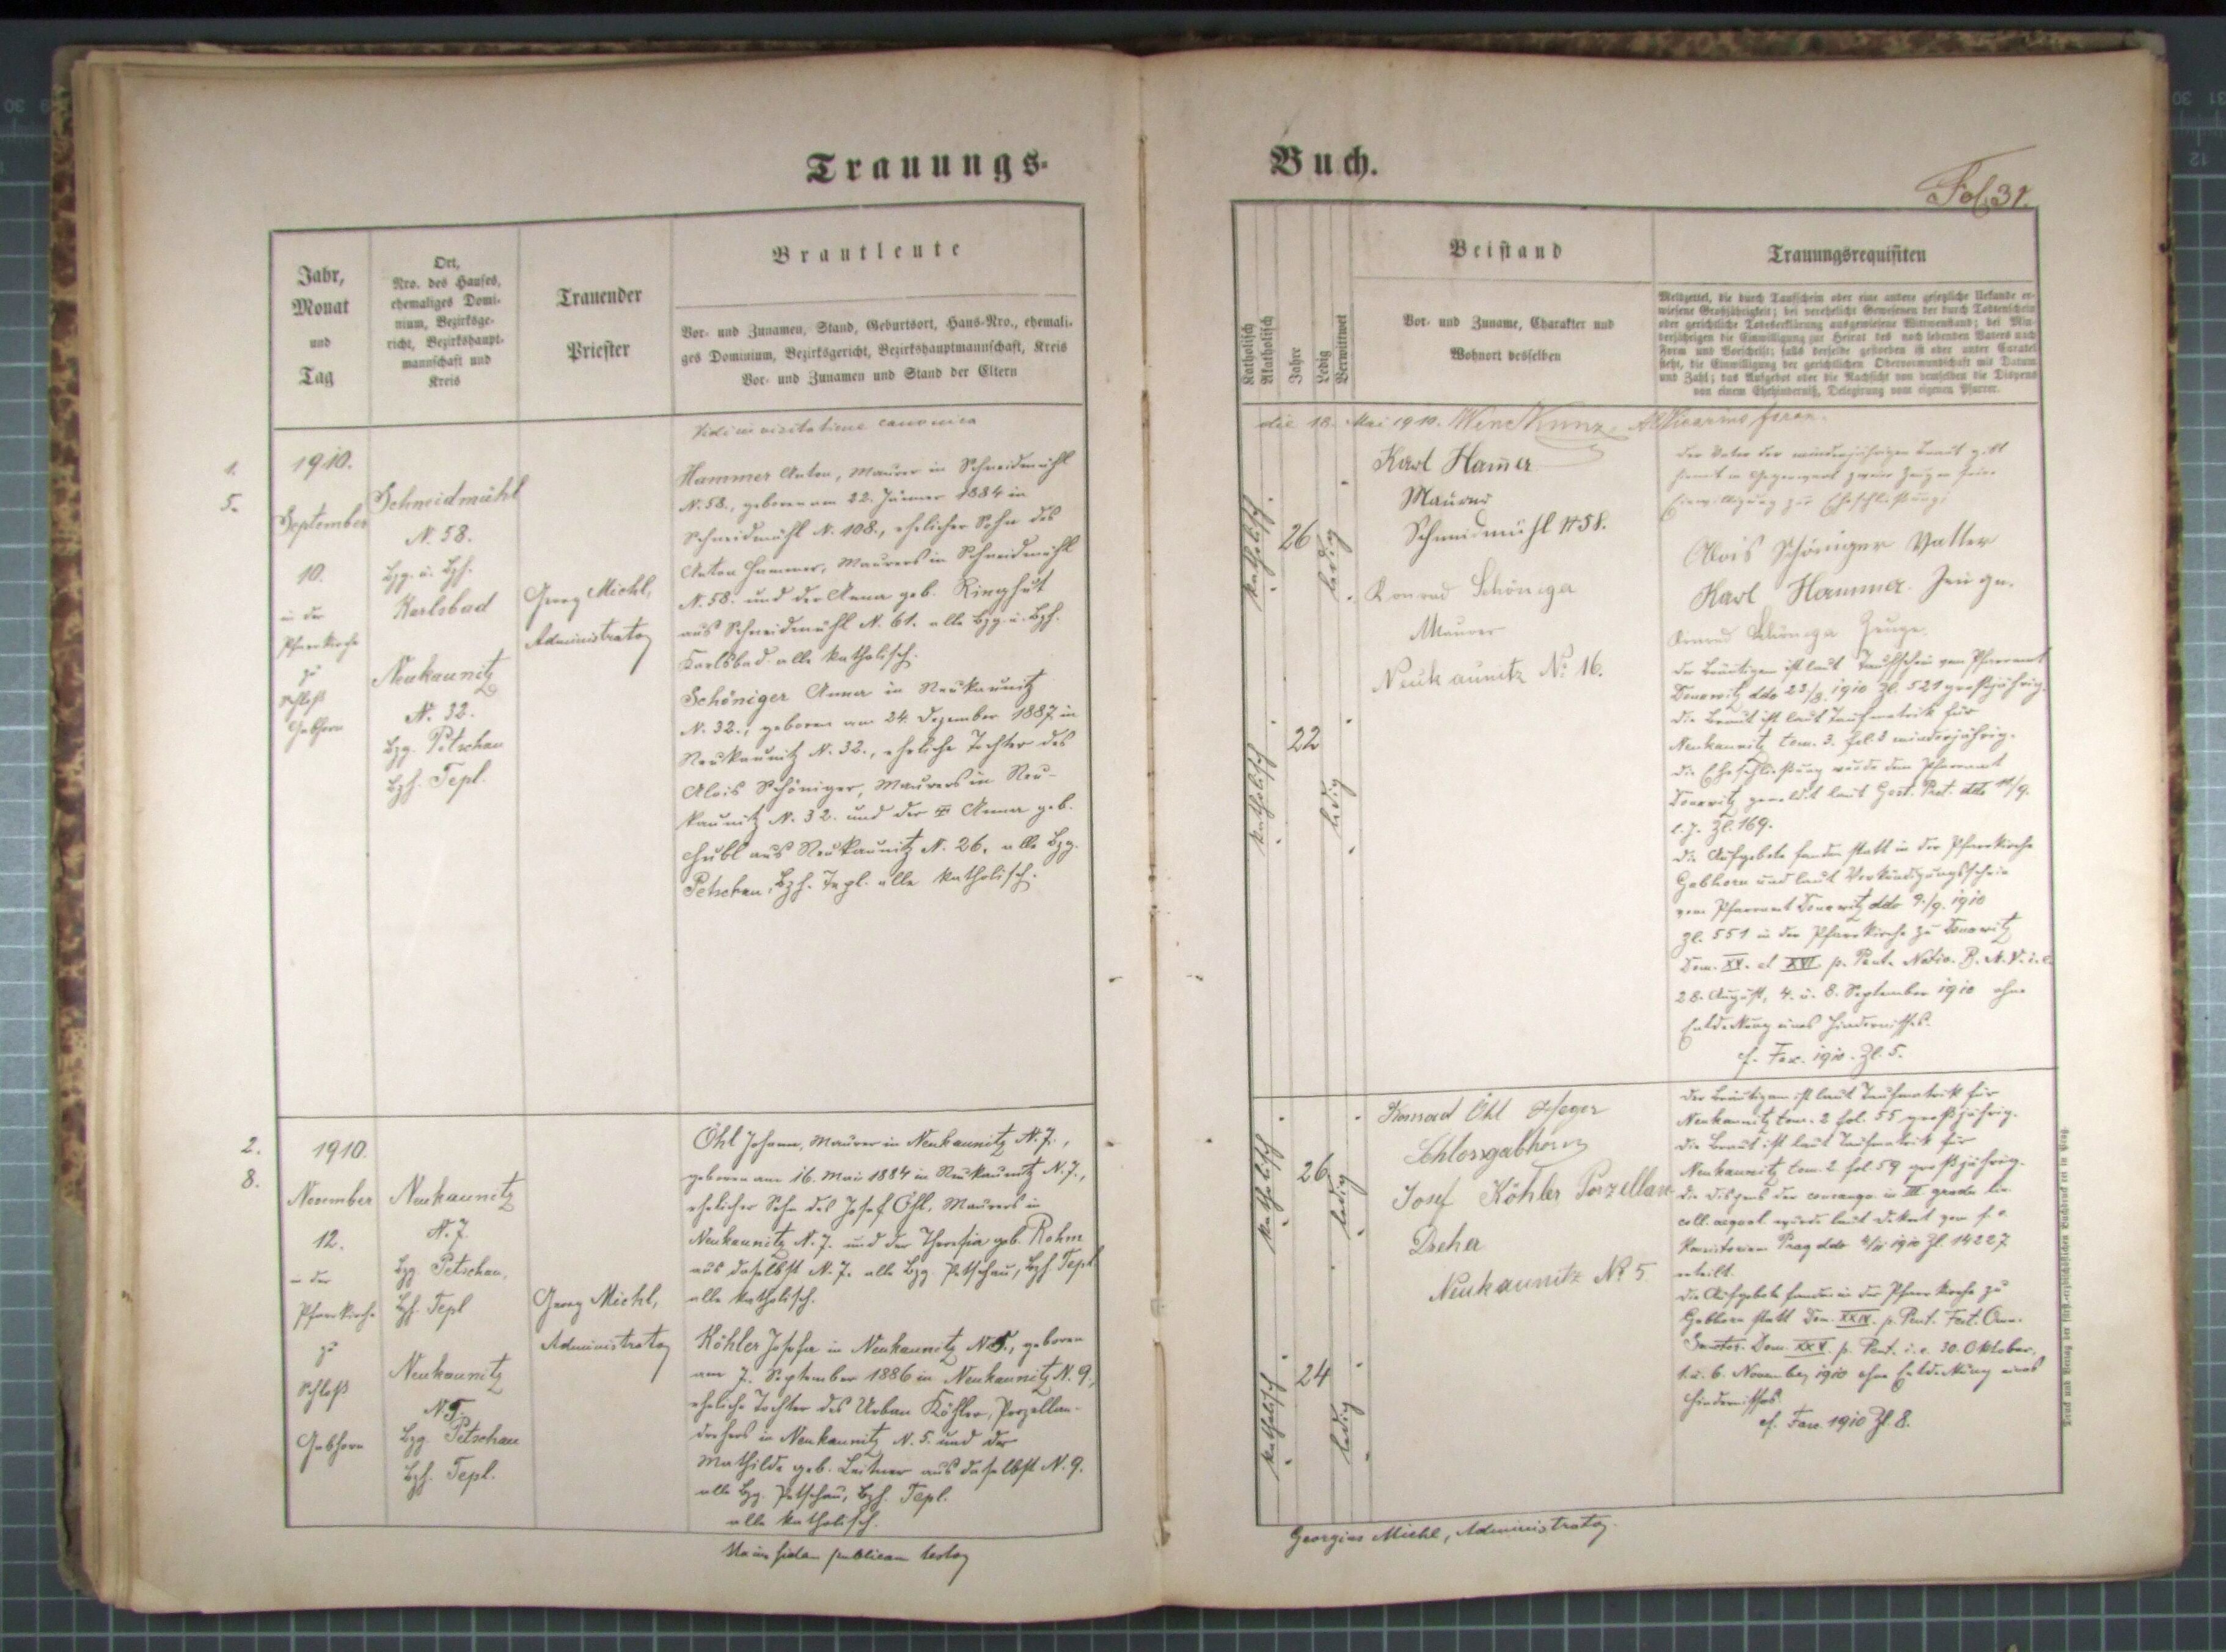 Trauungs-
Jahr,
Monat
und
Tag
Ort,
Nro. des Hauses,
ehemaliges Domi-
nium, Bezirksge-
richt, Bezirkshaupt-
mannschaft und
Kreis
Trauender
Priester
Brautleute
Vor- und Zunamen, Stand, Geburtsort, Haus-Nro., ehemali-
ges Dominium, Bezirksgericht, Bezirkshauptmannschaft, Kreis
Vor- und Zunamen und Stand der Eltern
Vidi in visitatione canonica
1.
5.
1910.
September
10.
in der
Pfarrkirche
zu
Schloß
Gabhorn
Schneidmühl
N. 58.
Bzg. u. Bzh.
Karlsbad
Neukaunitz
N. 32.
Bzg. Petschau
Bzh. Tepl.
Georg Michl,
Administrator
Hammer Anton, Maurer in Schneidmühl
N. 58., geboren am 22. Jänner 1884 in
Schneidmühl N. 108., ehelicher Sohn des
Anton Hammer, Maurers in Schneidmühl
N. 58. und der Anna geb. Ringhut
aus Schneidmühl N. 61. alle Bzg. u. Bzh.
Karlsbad alle katholisch.
Schöniger Anna in Neukaunitz
N. 32., geboren am 24. Dezember 1887 in
Neukaunitz N. 32., eheliche Tochter des
Alois Schöniger, Maurers in Neu-
kaunitz N. 32. und der Anna geb.
Hubl aus Neukaunitz N. 26. alle Bzg.
Petschau, Bzh. Tepl. alle katholisch.
2.
8.
1910.
November
12.
in der
Pfarrkirche
zu
Schloß
Gabhorn
Neukaunitz
N. 7.
Bzg. Petschau,
Bzh. Tepl
Neukaunitz
N. 5.
Bzg. Petschau
Bzh. Tepl.
Georg Michl,
Administrator
Öhl Johann, Maurer in Neukaunitz N. 7.,
geboren am 16. Mai 1884 in Neukaunitz N. 7.,
ehelicher Sohn des Josef Öhl, Maurers in
Neukaunitz N. 7. und der Theresia geb. Rohm
aus daselbst N. 7. alle Bzg. Petschau, Bzh. Tepl
alle katholisch.
Köhler Josefa in Neukaunitz N. 5., geboren
am 7. September 1886 in Neukaunitz N. 9.,
eheliche Tochter des Urban Köhler, Porzellan-
drehers in Neukaunitz N. 5. und der
Mathilde geb. Leitner aus daselbst N. 9.
alle Bzg. Petschau, Bzh. Tepl.
alle katholisch.
fidem publicam testor
Buch.
Fol. 31.
Katholisch
Akatholisch
Jahre
Ledig
Verwittwet
Beistand
Vor- und Zuname, Charakter und
Wohnort desselben
Trauungsrequisiten
Meldzettel, die durch Taufschein oder eine andere gesezliche Urkunde er-
wiesene Großjährigkeit; bei verehelicht Gewesenen der durch Todtenschein
oder gerichtliche Todeserklärung ausgewiesene Wittwenstand; bei Min-
derjährigen die Einwilligung zur Heirat des noch lebenden Vaters nach
Form und Vorschrift; falls derselbe gestorben ist oder unter Curatel
steht, die Einwilligung der gerichtlichen Obervormundschaft mit Datum
und Zahl; das Aufgebot oder die Nachsicht von demselben die Dispens
von einem Ehehinderniß, Delegirung vom eigenen Pfarrer.
die 18. Mai 1910. Wenz Kunz
katholisch
26
ledig
katholisch
22
ledig
Karl Hamer
Maurer
Schneidmühl N 58.
Konrad Schöniger
Maurer
Neukaunitz No. 16.
Der Vater der minderjährigen Braut gibt
hiermit in Gegenwart zweier Zeugen seine
Einwilligung zur Eheschließung:
Alois Schöniger Vatter
Karl Hammer. Zeuge.
Konrad Schöniger Zeuge.
Der Bräutigam ist laut Taufschein vom Pfarramt
Donawitz ddo 23/8. 1910 Zl. 521 großjährig.
Die Braut ist laut Taufmatrik für
Neukaunitz tom. 3. fol. 8 minderjährig.
Die Eheschließung wurde dem Pfarramt
Donawitz gemeldet laut Gest. Prot. ddo 11/9.
l. J. Zl. 169.
Die Aufgebote fanden statt in der Pfarrkirche
Gabhorn und laut Verkündigungsschein
vom Pfarramt Donawitz ddo 9./9. 1910
Zl. 551 in der Pfarrkirche zu Donawitz
Dom. XV. et XVI. p. Pent. Nativ. B. M. V. i. e.
28. August, 4. u. 8. September 1910 ohne
Entdeckung eines Hindernisses.
cf. Fasc. 1910. Zl. 5.
katholisch
26
ledig
katholisch
24
ledig
Konrad Öhl Heger
Schlossgabhorn
Josef Köhler Porzellan
Dreher
Neukaunitz No 5
Der Bräutigam ist laut Taufmatrik für
Neukaunitz tom. 2 fol. 55 großjährig.
Die Braut ist laut Taufmatrik für
Neukaunitz tom. 2 fol. 59 großjährig.
Die Dispens der consangu. in III. gradu lin.
coll. aequal. wurde laut Dekret vom f. e.
Konsistorium Prag ddo 4/11 1910 Zl. 14227
erteilt.
Die Aufgebote fanden in der Pfarrkirche zu
Gabhorn statt Dom. XXIV. p. Pent. Fest. Omn.
Sanctor. Dom. XXV. p. Pent. i. e. 30. Oktober,
1. u. 6. November 1910 ohne Entdeckung eines
Hindernisses.
cf. Fasc. 1910 Zl. 8.
Georgius Michl, Administrator.